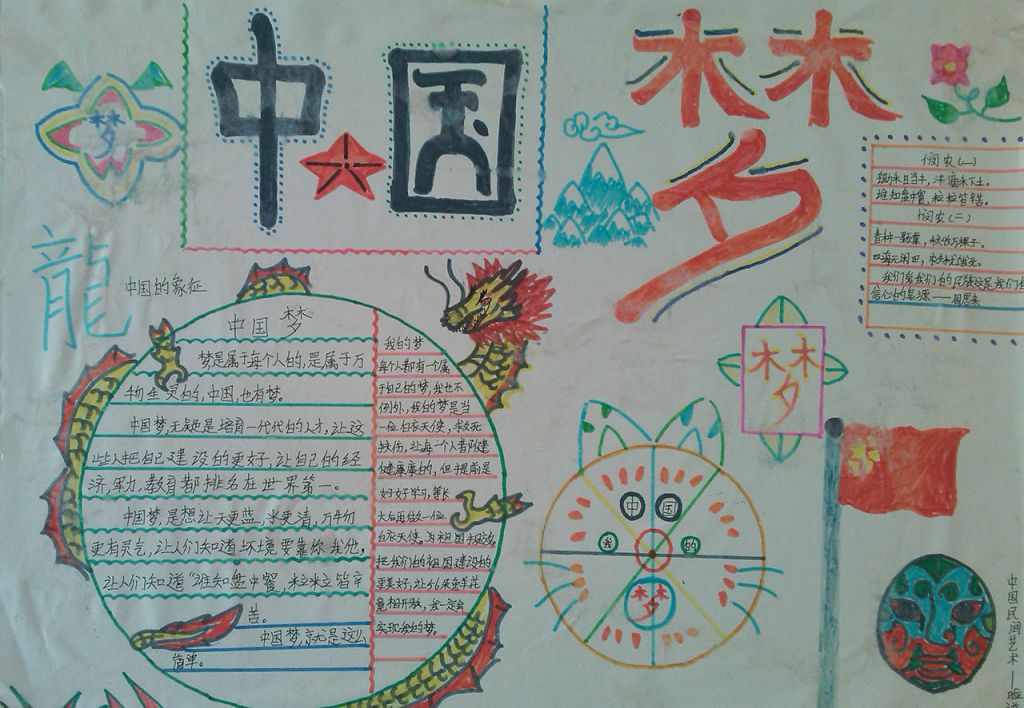 中国梦
梦
龍
中国的象征
中国梦
梦是属于每个人的,是属于万
物生灵的,中国,也有梦。
中国梦,无疑是培育一代代的人才,让这
些人把自己建设的更好,让自己的经
济,军力,教育都排名在世界第一。
中国梦,是想让天更蓝,水更清,万物
更有灵气,让人们知道环境要靠你我他,
让人们知道“谁知盘中餐,粒粒皆辛
苦。
中国梦,就是这么
简单。
我的梦
每个人都有一个属
于自己的梦,我也不
例外,我的梦是当
一位白衣天使,救死
扶伤,让每一个人都健
健康康的,但于提前是
好好学习,等长
大后再做一位
白衣天使。为祖国
把我们的祖国建设的
更美好,让56朵金花
竞相开放,我一定会
实现我的梦。
悯农(一)
锄禾日当午,汗滴禾下土。
谁知盘中餐,粒粒皆辛苦。
悯农(二)
春种一颗粟,秋收万棵子。
四海无闲田,农夫犹饿死。
我们爱我们的民族这是我们自
信心的泉源——周恩来
梦
中 国
我 的
梦
中国民间艺术—脸谱